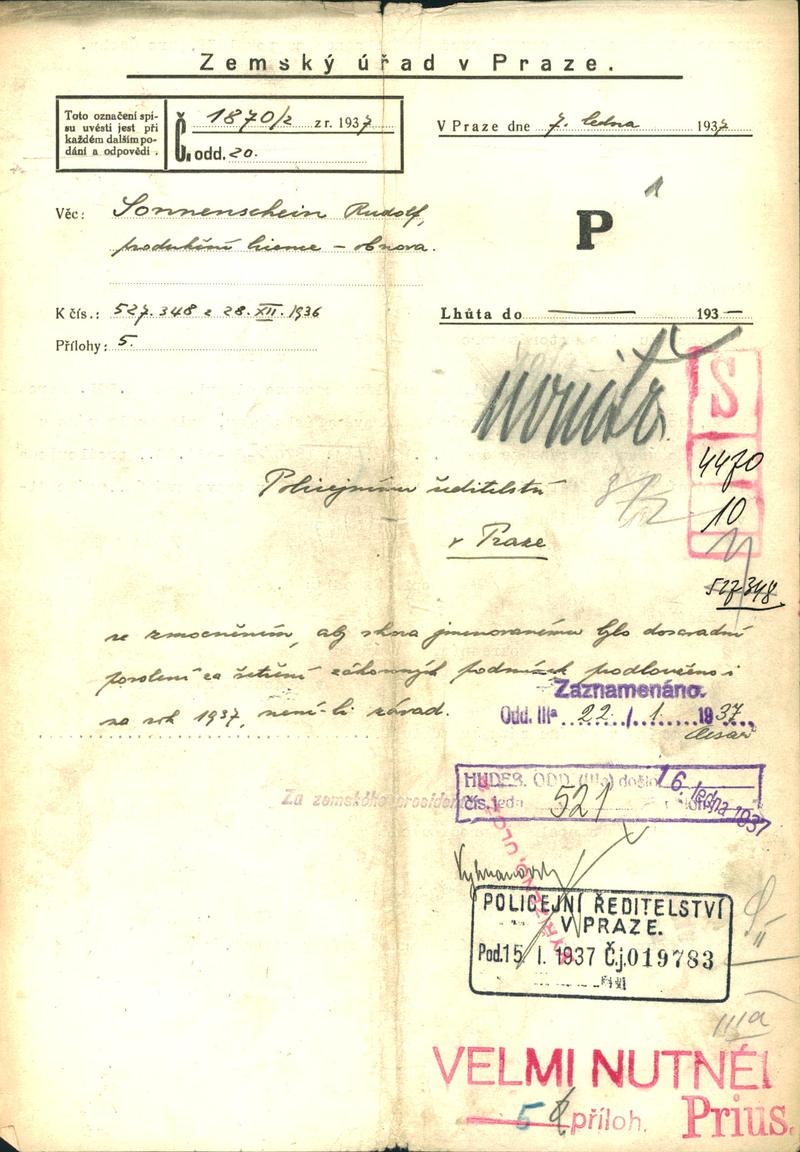 Zemský úřad v Praze.
Toto označení spi-
su uvésti jest při
každém dalším po-
dání a odpovědi.
Č. 1870/2 z r. 1937
odd. 20.
V Praze dne 7. ledna 1937
Věc: Sonnenschein Rudolf,
produkční licence – obnova.
P
K čís.: 527.348 z 28. XII. 1936
Lhůta do — 193—
Přílohy: 5.
S
4470
10
Policejnímu ředitelství
v Praze
527348
se zmocněním, aby shora jmenovanému bylo dosavadní
povolení za šetření zákonných podmínek prodlouženo i
na rok 1937, není-li závad.
Zaznamenáno.
Odd. IIIa 22./1. 1937
HUDEB. ODD. (IIIa) došlo 16. ledna 1937
čís. jedn. 521
Za zemského presidenta
POLICEJNÍ ŘEDITELSTVÍ
V PRAZE.
Pod. 15 I. 1937 Č.j. 019783
IIIa
VELMI NUTNÉ!
5 příloh. Prius.